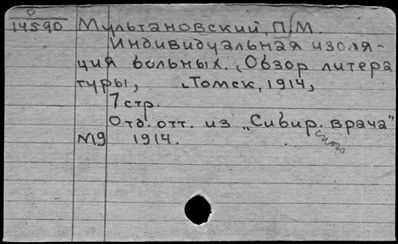 0
14590 Мультановский, П/М.
Индивидуальная изоля-
ция больных. Обзор литера
туры, Томск, 1914,
7 стр.
Отд. отт. из „Сибир. врача"
ского
№19 1914.